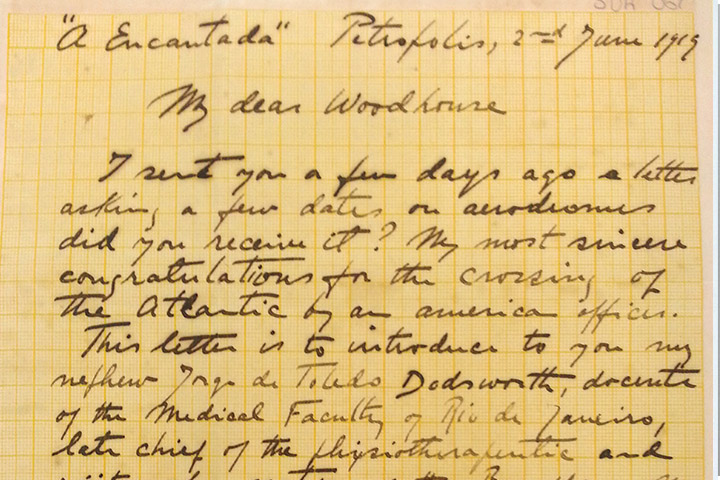 SUR 061
"A Encantada" Petropolis, 2nd June 1919
My dear Woodhouse
I sent you a few days ago a letter
asking a few dates on aerodromes
did you receive it? My most sincere
congratulations for the crossing of
the Atlantic by an america officer.
This letter is to introduce to you my
nephew Jorge de Toledo Dodsworth, docente
of the Medical Faculty of Rio de Janeiro,
late chief of the physiotherapeutic and